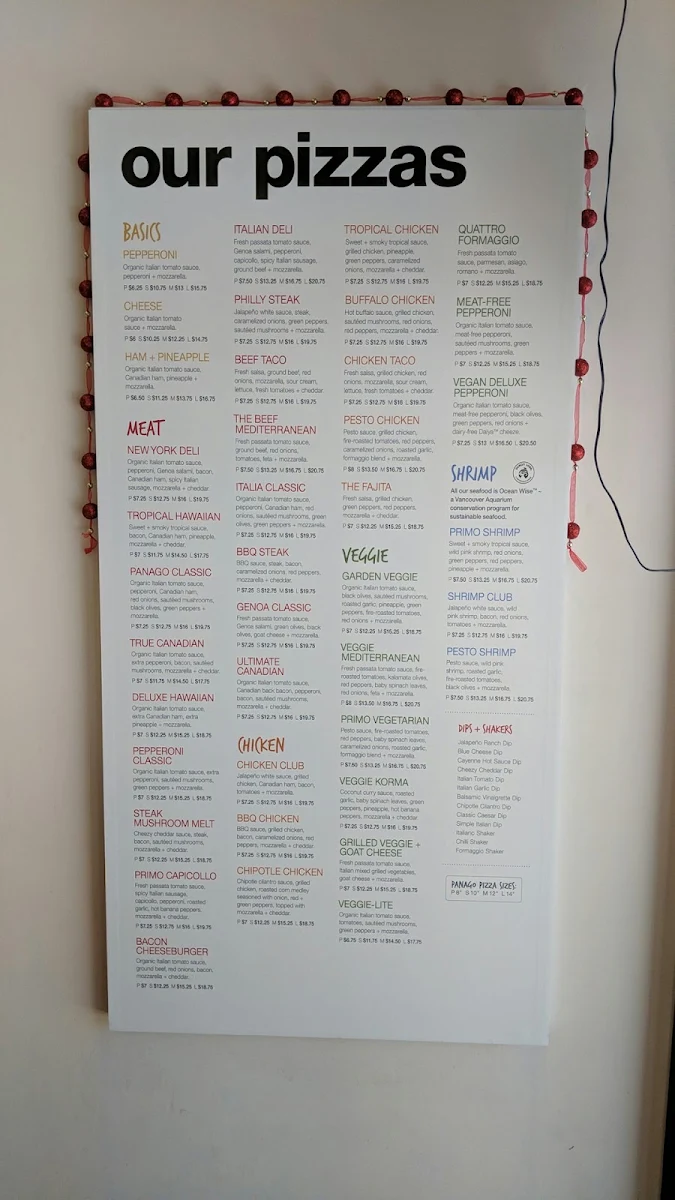 our pizzas
BASICS
PEPPERONI
Organic Italian tomato sauce,
pepperoni + mozzarella.
P $6.25 S $10.75 M $13 L $15.75
CHEESE
Organic Italian tomato
sauce + mozzarella.
P $6 S $10.25 M $12.25 L $14.75
HAM + PINEAPPLE
Organic Italian tomato sauce,
Canadian ham, pineapple +
mozzarella.
P $6.50 S $11.25 M $13.75 L $16.75
MEAT
NEW YORK DELI
Organic Italian tomato sauce,
pepperoni, Genoa salami, bacon,
Canadian ham, spicy Italian
sausage, mozzarella + cheddar.
P $7.25 S $12.75 M $16 L $19.75
TROPICAL HAWAIIAN
Sweet + smoky tropical sauce,
bacon, Canadian ham, pineapple,
mozzarella + cheddar.
P $7 S $11.75 M $14.50 L $17.75
PANAGO CLASSIC
Organic Italian tomato sauce,
pepperoni, Canadian ham,
red onions, sautéed mushrooms,
black olives, green peppers +
mozzarella.
P $7.25 S $12.75 M $16 L $19.75
TRUE CANADIAN
Organic Italian tomato sauce,
extra pepperoni, bacon, sautéed
mushrooms, mozzarella + cheddar.
P $7 S $11.75 M $14.50 L $17.75
DELUXE HAWAIIAN
Organic Italian tomato sauce,
extra Canadian ham, extra
pineapple + mozzarella.
P $7 S $12.25 M $15.25 L $18.75
PEPPERONI
CLASSIC
Organic Italian tomato sauce, extra
pepperoni, sautéed mushrooms,
green peppers + mozzarella.
P $7 S $12.25 M $15.25 L $18.75
STEAK
MUSHROOM MELT
Cheezy cheddar sauce, steak,
bacon, sautéed mushrooms,
mozzarella + cheddar.
P $7 S $12.25 M $15.25 L $18.75
PRIMO CAPICOLLO
Fresh passata tomato sauce,
spicy Italian sausage,
capicollo, pepperoni, roasted
garlic, hot banana peppers,
mozzarella + cheddar.
P $7.25 S $12.75 M $16 L $19.75
BACON
CHEESEBURGER
Organic Italian tomato sauce,
ground beef, red onions, bacon,
mozzarella + cheddar.
P $7 S $12.25 M $15.25 L $18.75
ITALIAN DELI
Fresh passata tomato sauce,
Genoa salami, pepperoni,
capicollo, spicy Italian sausage,
ground beef + mozzarella.
P $7.50 S $13.25 M $16.75 L $20.75
PHILLY STEAK
Jalapeño white sauce, steak,
caramelized onions, green peppers,
sautéed mushrooms + mozzarella.
P $7.25 S $12.75 M $16 L $19.75
BEEF TACO
Fresh salsa, ground beef, red
onions, mozzarella, sour cream,
lettuce, fresh tomatoes + cheddar.
P $7.25 S $12.75 M $16 L $19.75
THE BEEF
MEDITERRANEAN
Fresh passata tomato sauce,
ground beef, red onions,
tomatoes, feta + mozzarella.
P $7.50 S $13.25 M $16.75 L $20.75
ITALIA CLASSIC
Organic Italian tomato sauce,
pepperoni, Canadian ham, red
onions, sautéed mushrooms, green
olives, green peppers + mozzarella.
P $7.25 S $12.75 M $16 L $19.75
BBQ STEAK
BBQ sauce, steak, bacon,
caramelized onions, red peppers,
mozzarella + cheddar.
P $7.25 S $12.75 M $16 L $19.75
GENOA CLASSIC
Fresh passata tomato sauce,
Genoa salami, green olives, black
olives, goat cheese + mozzarella.
P $7.25 S $12.75 M $16 L $19.75
ULTIMATE
CANADIAN
Organic Italian tomato sauce,
Canadian back bacon, pepperoni,
bacon, sautéed mushrooms,
mozzarella + cheddar.
P $7.25 S $12.75 M $16 L $19.75
CHICKEN
CHICKEN CLUB
Jalapeño white sauce, grilled
chicken, Canadian ham, bacon,
tomatoes + mozzarella.
P $7.25 S $12.75 M $16 L $19.75
BBQ CHICKEN
BBQ sauce, grilled chicken,
bacon, caramelized onions, red
peppers, mozzarella + cheddar.
P $7.25 S $12.75 M $16 L $19.75
CHIPOTLE CHICKEN
Chipotle cilantro sauce, grilled
chicken, roasted corn medley
seasoned with onion, red +
green peppers, topped with
mozzarella + cheddar.
P $7 S $12.25 M $15.25 L $18.75
TROPICAL CHICKEN
Sweet + smoky tropical sauce,
grilled chicken, pineapple,
green peppers, caramelized
onions, mozzarella + cheddar.
P $7.25 S $12.75 M $16 L $19.75
BUFFALO CHICKEN
Hot buffalo sauce, grilled chicken,
sautéed mushrooms, red onions,
red peppers, mozzarella + cheddar.
P $7.25 S $12.75 M $16 L $19.75
CHICKEN TACO
Fresh salsa, grilled chicken, red
onions, mozzarella, sour cream,
lettuce, fresh tomatoes + cheddar.
P $7.25 S $12.75 M $16 L $19.75
PESTO CHICKEN
Pesto sauce, grilled chicken,
fire-roasted tomatoes, red peppers,
caramelized onions, roasted garlic,
formaggio blend + mozzarella.
P $8 S $13.50 M $16.75 L $20.75
THE FAJITA
Fresh salsa, grilled chicken,
green peppers, red peppers,
mozzarella + cheddar.
P $7 S $12.25 M $15.25 L $18.75
VEGGIE
GARDEN VEGGIE
Organic Italian tomato sauce,
black olives, sautéed mushrooms,
roasted garlic, pineapple, green
peppers, fire-roasted tomatoes,
red onions + mozzarella.
P $7 S $12.25 M $15.25 L $18.75
VEGGIE
MEDITERRANEAN
Fresh passata tomato sauce, fire-
roasted tomatoes, kalamata olives,
red peppers, baby spinach leaves,
red onions, feta + mozzarella.
P $8 S $13.50 M $16.75 L $20.75
PRIMO VEGETARIAN
Pesto sauce, fire-roasted tomatoes,
red peppers, baby spinach leaves,
caramelized onions, roasted garlic,
formaggio blend + mozzarella.
P $7.50 S $13.25 M $16.75 L $20.75
VEGGIE KORMA
Coconut curry sauce, roasted
garlic, baby spinach leaves, green
peppers, pineapple, hot banana
peppers, mozzarella + cheddar
P $7.25 S $12.75 M $16 L $19.75
GRILLED VEGGIE +
GOAT CHEESE
Fresh passata tomato sauce,
Italian mixed grilled vegetables,
goat cheese + mozzarella.
P $7 S $12.25 M $15.25 L $18.75
VEGGIE-LITE
Organic Italian tomato sauce,
tomatoes, sautéed mushrooms,
green peppers + mozzarella.
P $6.75 S $11.75 M $14.50 L $17.75
QUATTRO
FORMAGGIO
Fresh passata tomato
sauce, parmesan, asiago,
romano + mozzarella.
P $7 S $12.25 M $15.25 L $18.75
MEAT-FREE
PEPPERONI
Organic Italian tomato sauce,
meat-free pepperoni,
sautéed mushrooms, green
peppers + mozzarella.
P $7 S $12.25 M $15.25 L $18.75
VEGAN DELUXE
PEPPERONI
Organic Italian tomato sauce,
meat-free pepperoni, black olives,
green peppers, red onions +
dairy-free Daiya™ cheeze.
P $7.25 S $13 M $16.50 L $20.50
SHRIMP
All our seafood is Ocean Wise™ –
a Vancouver Aquarium
conservation program for
sustainable seafood.
PRIMO SHRIMP
Sweet + smoky tropical sauce,
wild pink shrimp, red onions,
green peppers, red peppers,
pineapple + mozzarella.
P $7.50 S $13.25 M $16.75 L $20.75
SHRIMP CLUB
Jalapeño white sauce, wild
pink shrimp, bacon, red onions,
tomatoes + mozzarella.
P $7.25 S $12.75 M $16 L $19.75
PESTO SHRIMP
Pesto sauce, wild pink
shrimp, roasted garlic,
fire-roasted tomatoes,
black olives + mozzarella.
P $7.50 S $13.25 M $16.75 L $20.75
DIPS + SHAKERS
Jalapeño Ranch Dip
Blue Cheese Dip
Cayenne Hot Sauce Dip
Cheezy Cheddar Dip
Italian Tomato Dip
Italian Garlic Dip
Balsamic Vinaigrette Dip
Chipotle Cilantro Dip
Classic Caesar Dip
Simple Italian Dip
Italiano Shaker
Chilli Shaker
Formaggio Shaker
PANAGO PIZZA SIZES:
P 8" S 10" M 12" L 14"